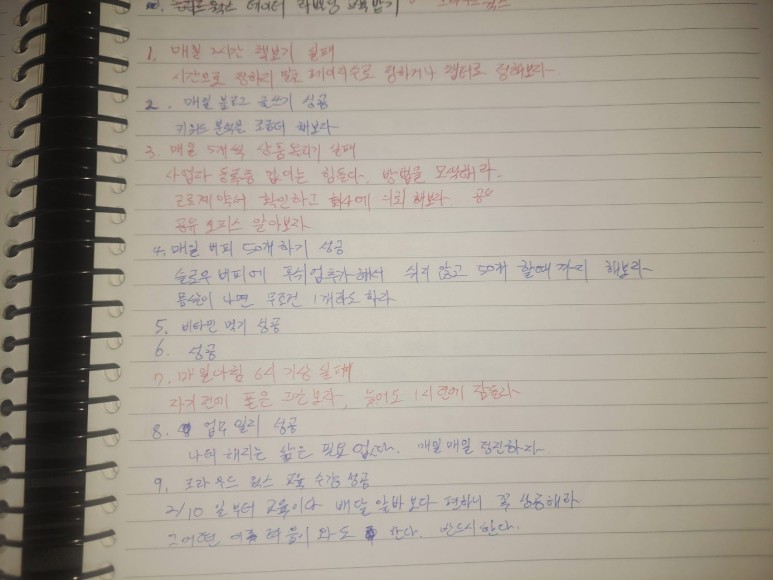 데이터 라벨링 교육받기
1. 매일 2시간 책보기 실패
시간으로 정하지 말고 페이지수로 정하거나 챕터로 정해보라
2. 매일 블로그 글쓰기 성공
키워드 분석을 해보라
3. 매일 5개씩 상품올리기 실패
사업자 등록증 없이는 힘들다. 방법을 모색해라.
근로계약서 확인하고 회사에 의뢰 해보라. 공유
공유 오피스 알아보라
4. 매일 버피 50개 하기 성공
슬로우 버피에 푸쉬업추가해서 쉬지 않고 50개 할때 까지 해보라
몸살이 나면 무조건 1개라도 하라
5. 비타민 먹기 성공
6. 성공
7. 매일아침 6시 기상 실패
자기 전에 폰은 그만보라, 늦어도 1시 전에 잠들라
8. 업무 일지 성공
나태 해지는 삶은 필요 없다. 매일매일 정진하자
9. 크라우드 웍스 교육 수강 성공
2/10 일부터 교육이다 배달 알바보다 편하니 꼭 성공해라
그어떤 어려움이 와도 한다. 반드시한다.